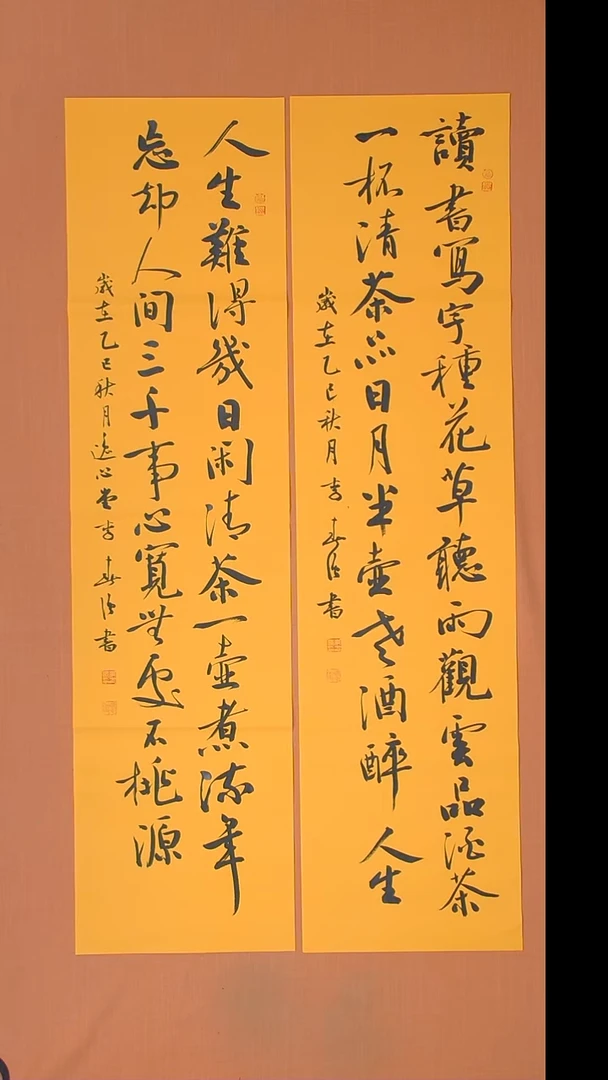 讀書寫字種花草聽雨觀雲品酒茶
一杯清茶品日月半壺老酒醉人生
歲在乙巳秋月李春書
人生難得幾日閑清茶一壺煮流年
忘却人間三千事心寬無處不桃源
歲在乙巳秋月心堂李春書